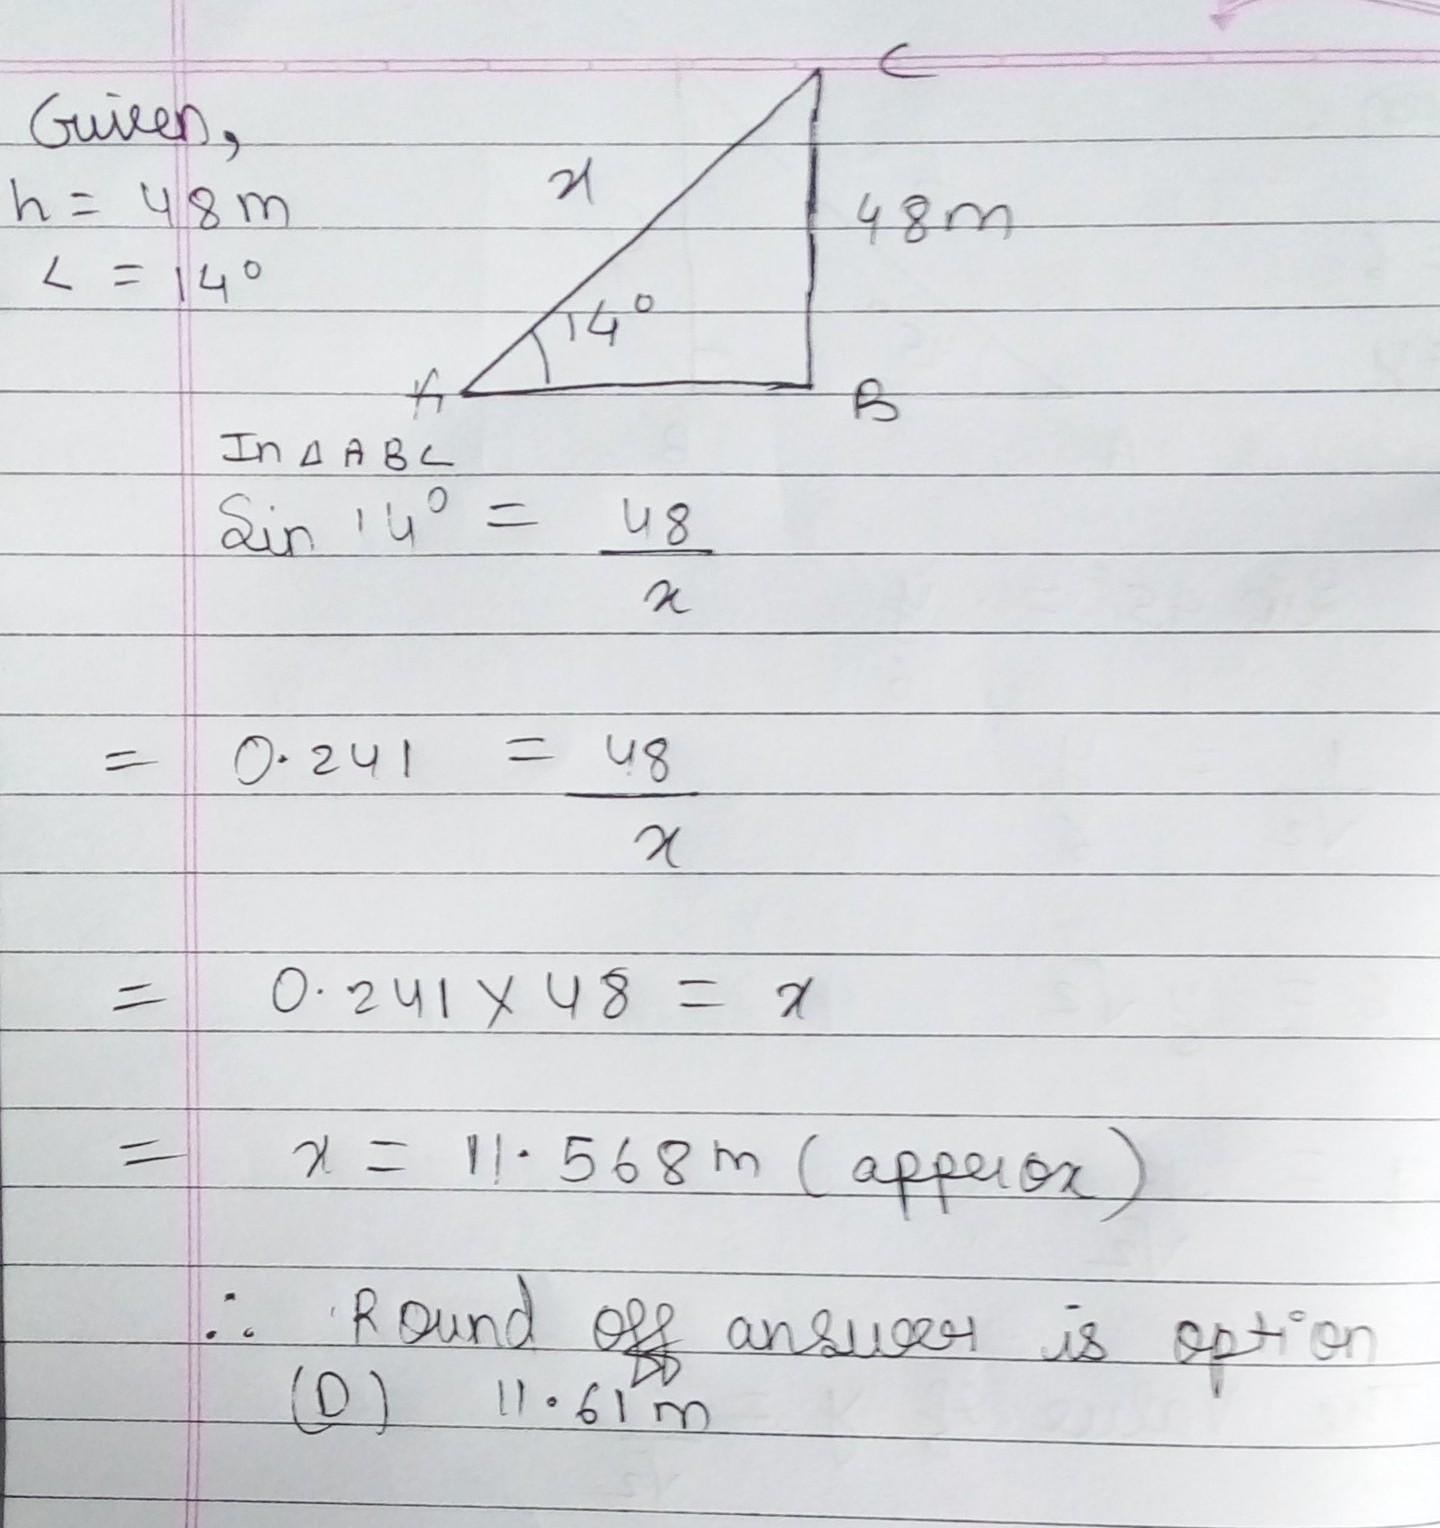 C
Given,
x
h = 48m
48m
∠ = 14°
14°
A
B
In Δ ABC
Sin 14° = 48/x
= 0.241 = 48/x
= 0.241 × 48 = x
= x = 11.568m (approx)
∴ Round off answer is option
(D) 11.61m